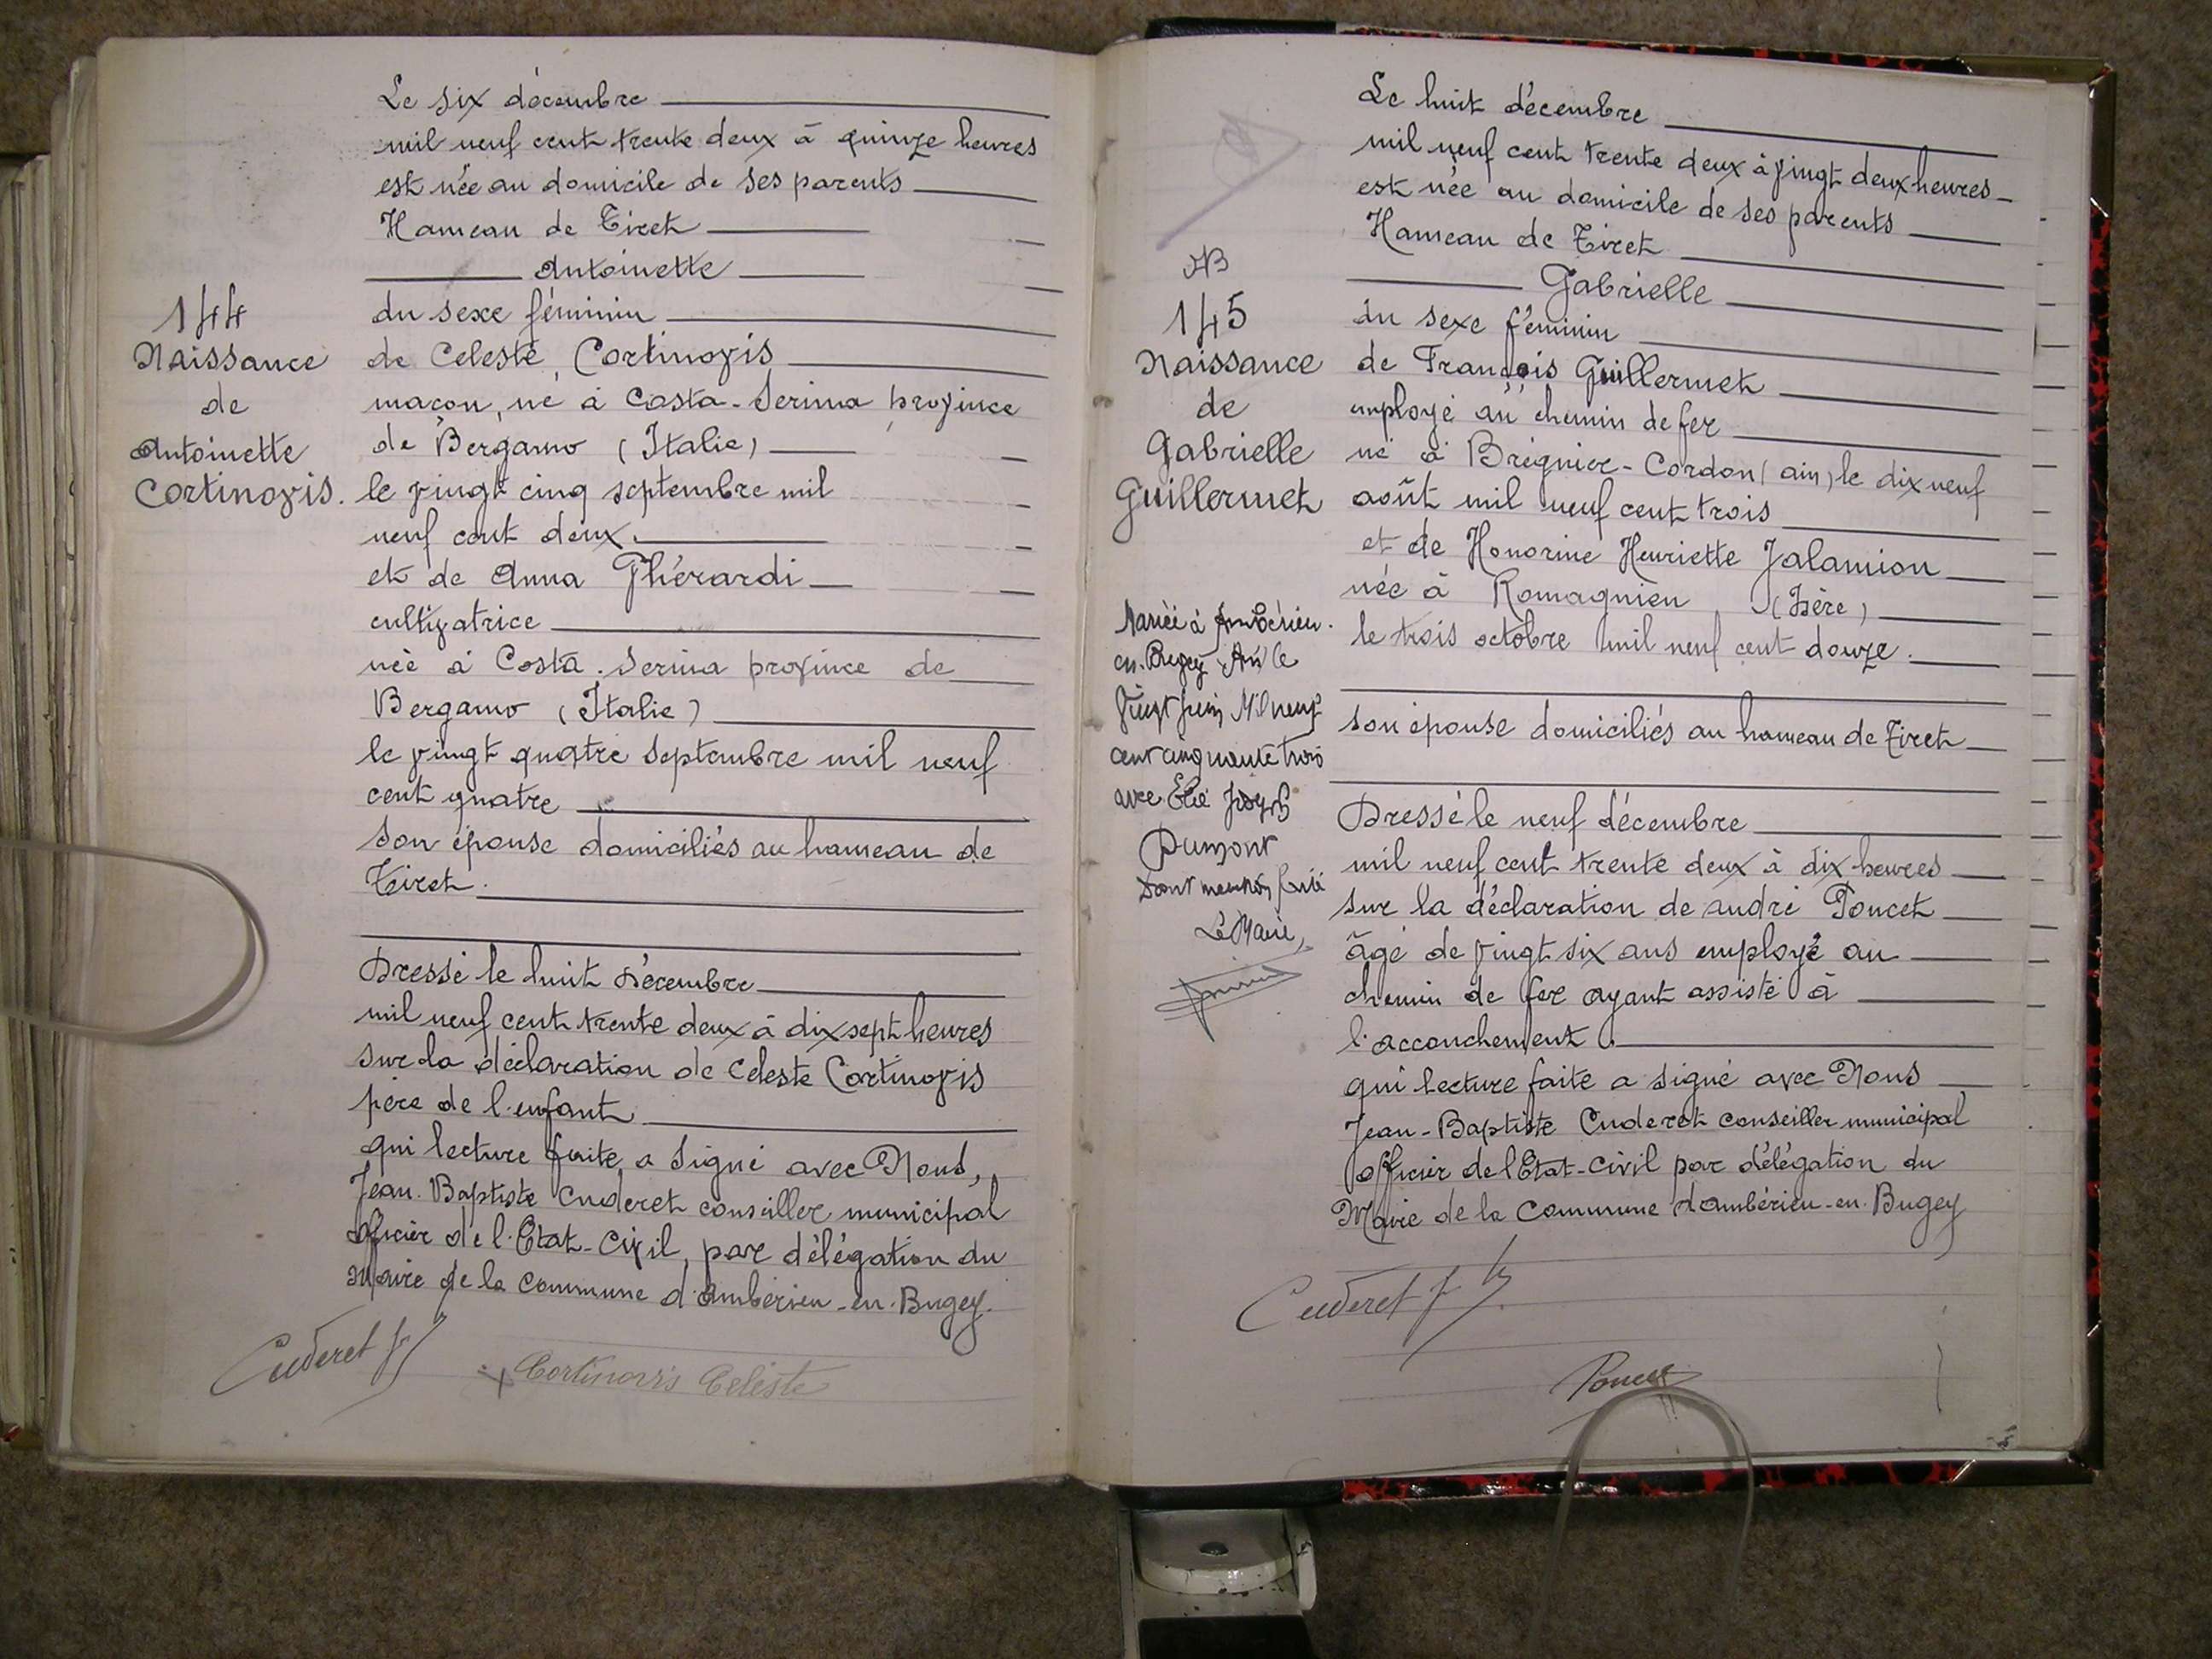 144
Naissance
de
Antoinette
Cortinovis.
Le six décembre
mil neuf cent trente deux à quinze heures
est née au domicile de ses parents
Hameau de Tiret
Antoinette
du sexe féminin
de Celeste Cortinovis
maçon, né à Costa-Serina province
de Bergamo (Italie)
le vingt cinq septembre mil
neuf cent deux.
et de Anna Ghérardi
cultivatrice
née à Costa. Serina province de
Bergamo (Italie)
le vingt quatre septembre mil neuf
cent quatre
son épouse domiciliés au hameau de
Tiret.
Dressé le huit décembre
mil neuf cent trente deux à dix sept heures
sur la déclaration de Celeste Cortinovis
père de l'enfant
qui lecture faite a signé avec Nous,
Jean-Baptiste Cuderet conseiller municipal
officier de l'Etat-Civil, par délégation du
Maire de la Commune d'Ambérieu-en-Bugey.
Cuderet
Cortinovis Celeste
145
Naissance
de
Gabrielle
Guillermet
Mariée à Ambérieu.
en-Bugey Ain le
vingt juin Mil neuf
cent cinquante trois
avec Elie Joseph
Dumont
Dont mention
Le Maire,
Le huit décembre
mil neuf cent trente deux à vingt deux heures
est née au domicile de ses parents
Hameau de Tiret
Gabrielle
du sexe féminin
de François Guillermet
employé au chemin de fer
né à Brégnier-Cordon (ain) le dix neuf
août mil neuf cent trois
et de Honorine Henriette Jalamion
née à Romagnieu (Isère)
le trois octobre mil neuf cent douze.
son épouse domiciliés au hameau de Tiret
Dressé le neuf décembre
mil neuf cent trente deux à dix heures
sur la déclaration de andré Poncet
âgé de vingt six ans employé au
chemin de fer ayant assisté à
l'accouchement
qui lecture faite a signé avec Nous
Jean-Baptiste Cuderet conseiller municipal
officier de l'Etat-Civil par délégation du
Maire de la Commune d'ambérieu-en-Bugey
Cuderet
Poncet